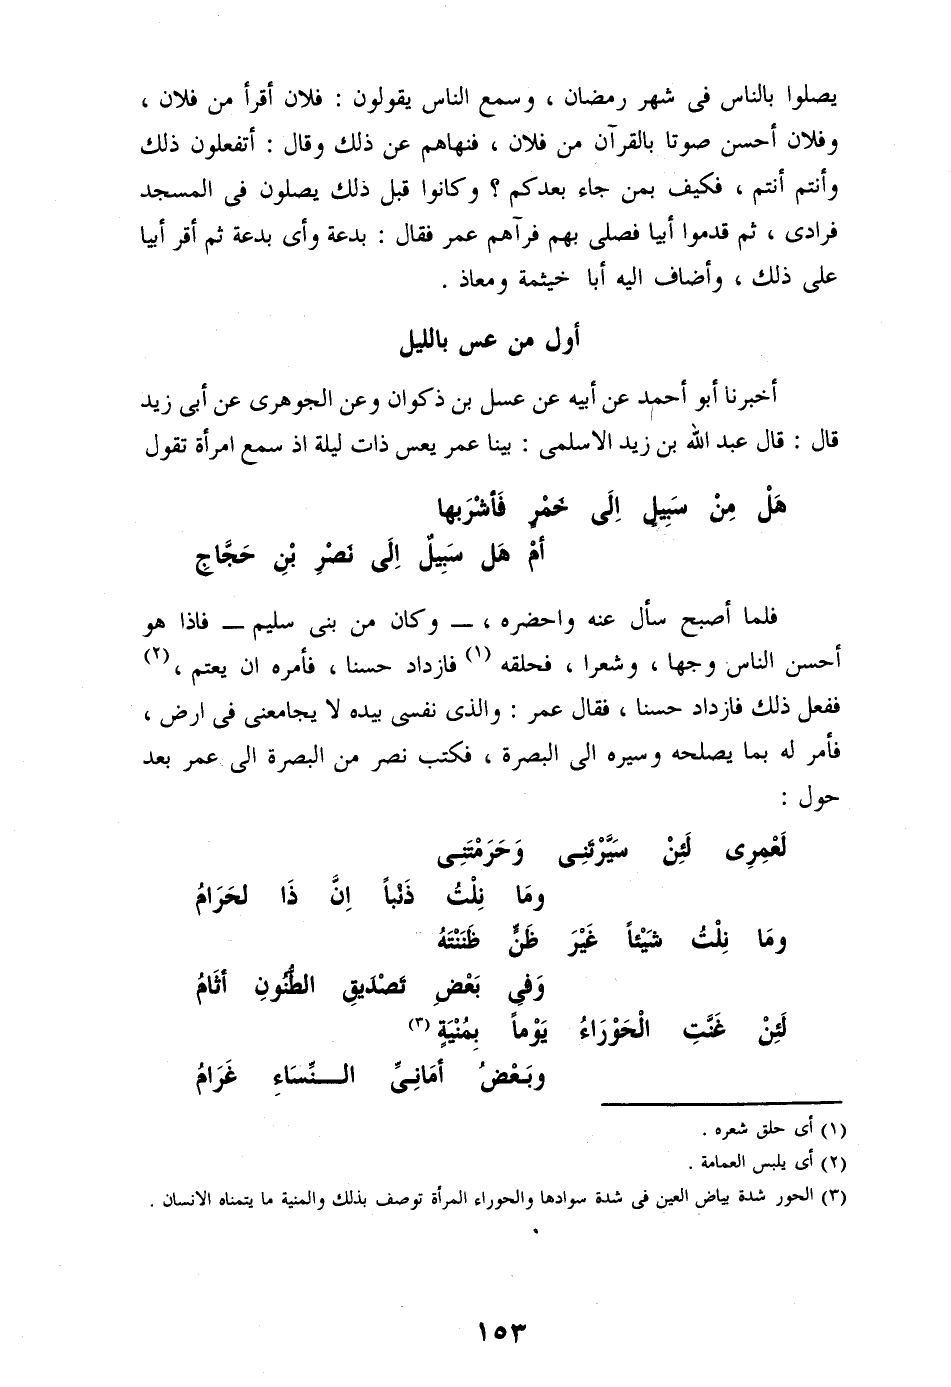 يصلوا بالناس فى شهر رمضان ، وسمع الناس يقولون : فلان أقرأ من فلان ،
وفلان أحسن صوتا بالقرآن من فلان ، فنهاهم عن ذلك وقال : أتفعلون ذلك
وأنتم أنتم ، فكيف بمن جاء بعدكم ؟ وكانوا قبل ذلك يصلون فى المسجد
فرادى ، ثم قدموا أبيا فصلى بهم فرآهم عمر فقال : بدعة وأى بدعة ثم أقر أبيا
على ذلك ، وأضاف اليه أبا خيثمة ومعاذ .
أول من عس بالليل
أخبرنا أبو أحمد عن أبيه عن عسل بن ذكوان وعن الجوهرى عن أبى زيد
قال : قال عبد الله بن زيد الاسلمى : بينا عمر يعس ذات ليلة اذ سمع امرأة تقول
هَلْ مِنْ سَبِيلٍ اِلَى خَمْرٍ فَأشْرَبها
أمْ هَل سَبِيلٌ اِلَى نَصْرِ بْنِ حَجَّاجِ
فلما أصبح سأل عنه واحضره ، — وكان من بنى سليم — فاذا هو
أحسن الناس وجها ، وشعرا ، فحلقه (١) فازداد حسنا ، فأمره ان يعتم ،(٢)
ففعل ذلك فازداد حسنا ، فقال عمر : والذى نفسى بيده لا يجامعنى فى ارض ،
فأمر له بما يصلحه وسيره الى البصرة ، فكتب نصر من البصرة الى عمر بعد
حول :
لَعْمِرِى لَئِنْ سَيَّرْتَنِى وَحَرَمْتَنِى
ومَا نِلْتُ ذَنْباً اِنَّ ذَا لحَرَامُ
ومَا نِلْتُ شَيْئاً غَيْرَ ظَنٍّ ظَنَنْتَهُ
وَفيِ بَعْضِ تَصْدَيقِ الظُّنُونِ أثَامُ
لَئِنْ غَنَّتِ الْحَوْرَاءُ يَوْماً بِمُنْيَةٍ (٣)
وبَعْضُ أمَانِىِّ النِّسَاءِ غَرَامُ
(١) أى حلق شعره .
(٢) أى يلبس العمامة .
(٣) الحور شدة بياض العين فى شدة سوادها والحوراء المرأة توصف بذلك والمنية ما يتمناه الانسان .
١٥٣